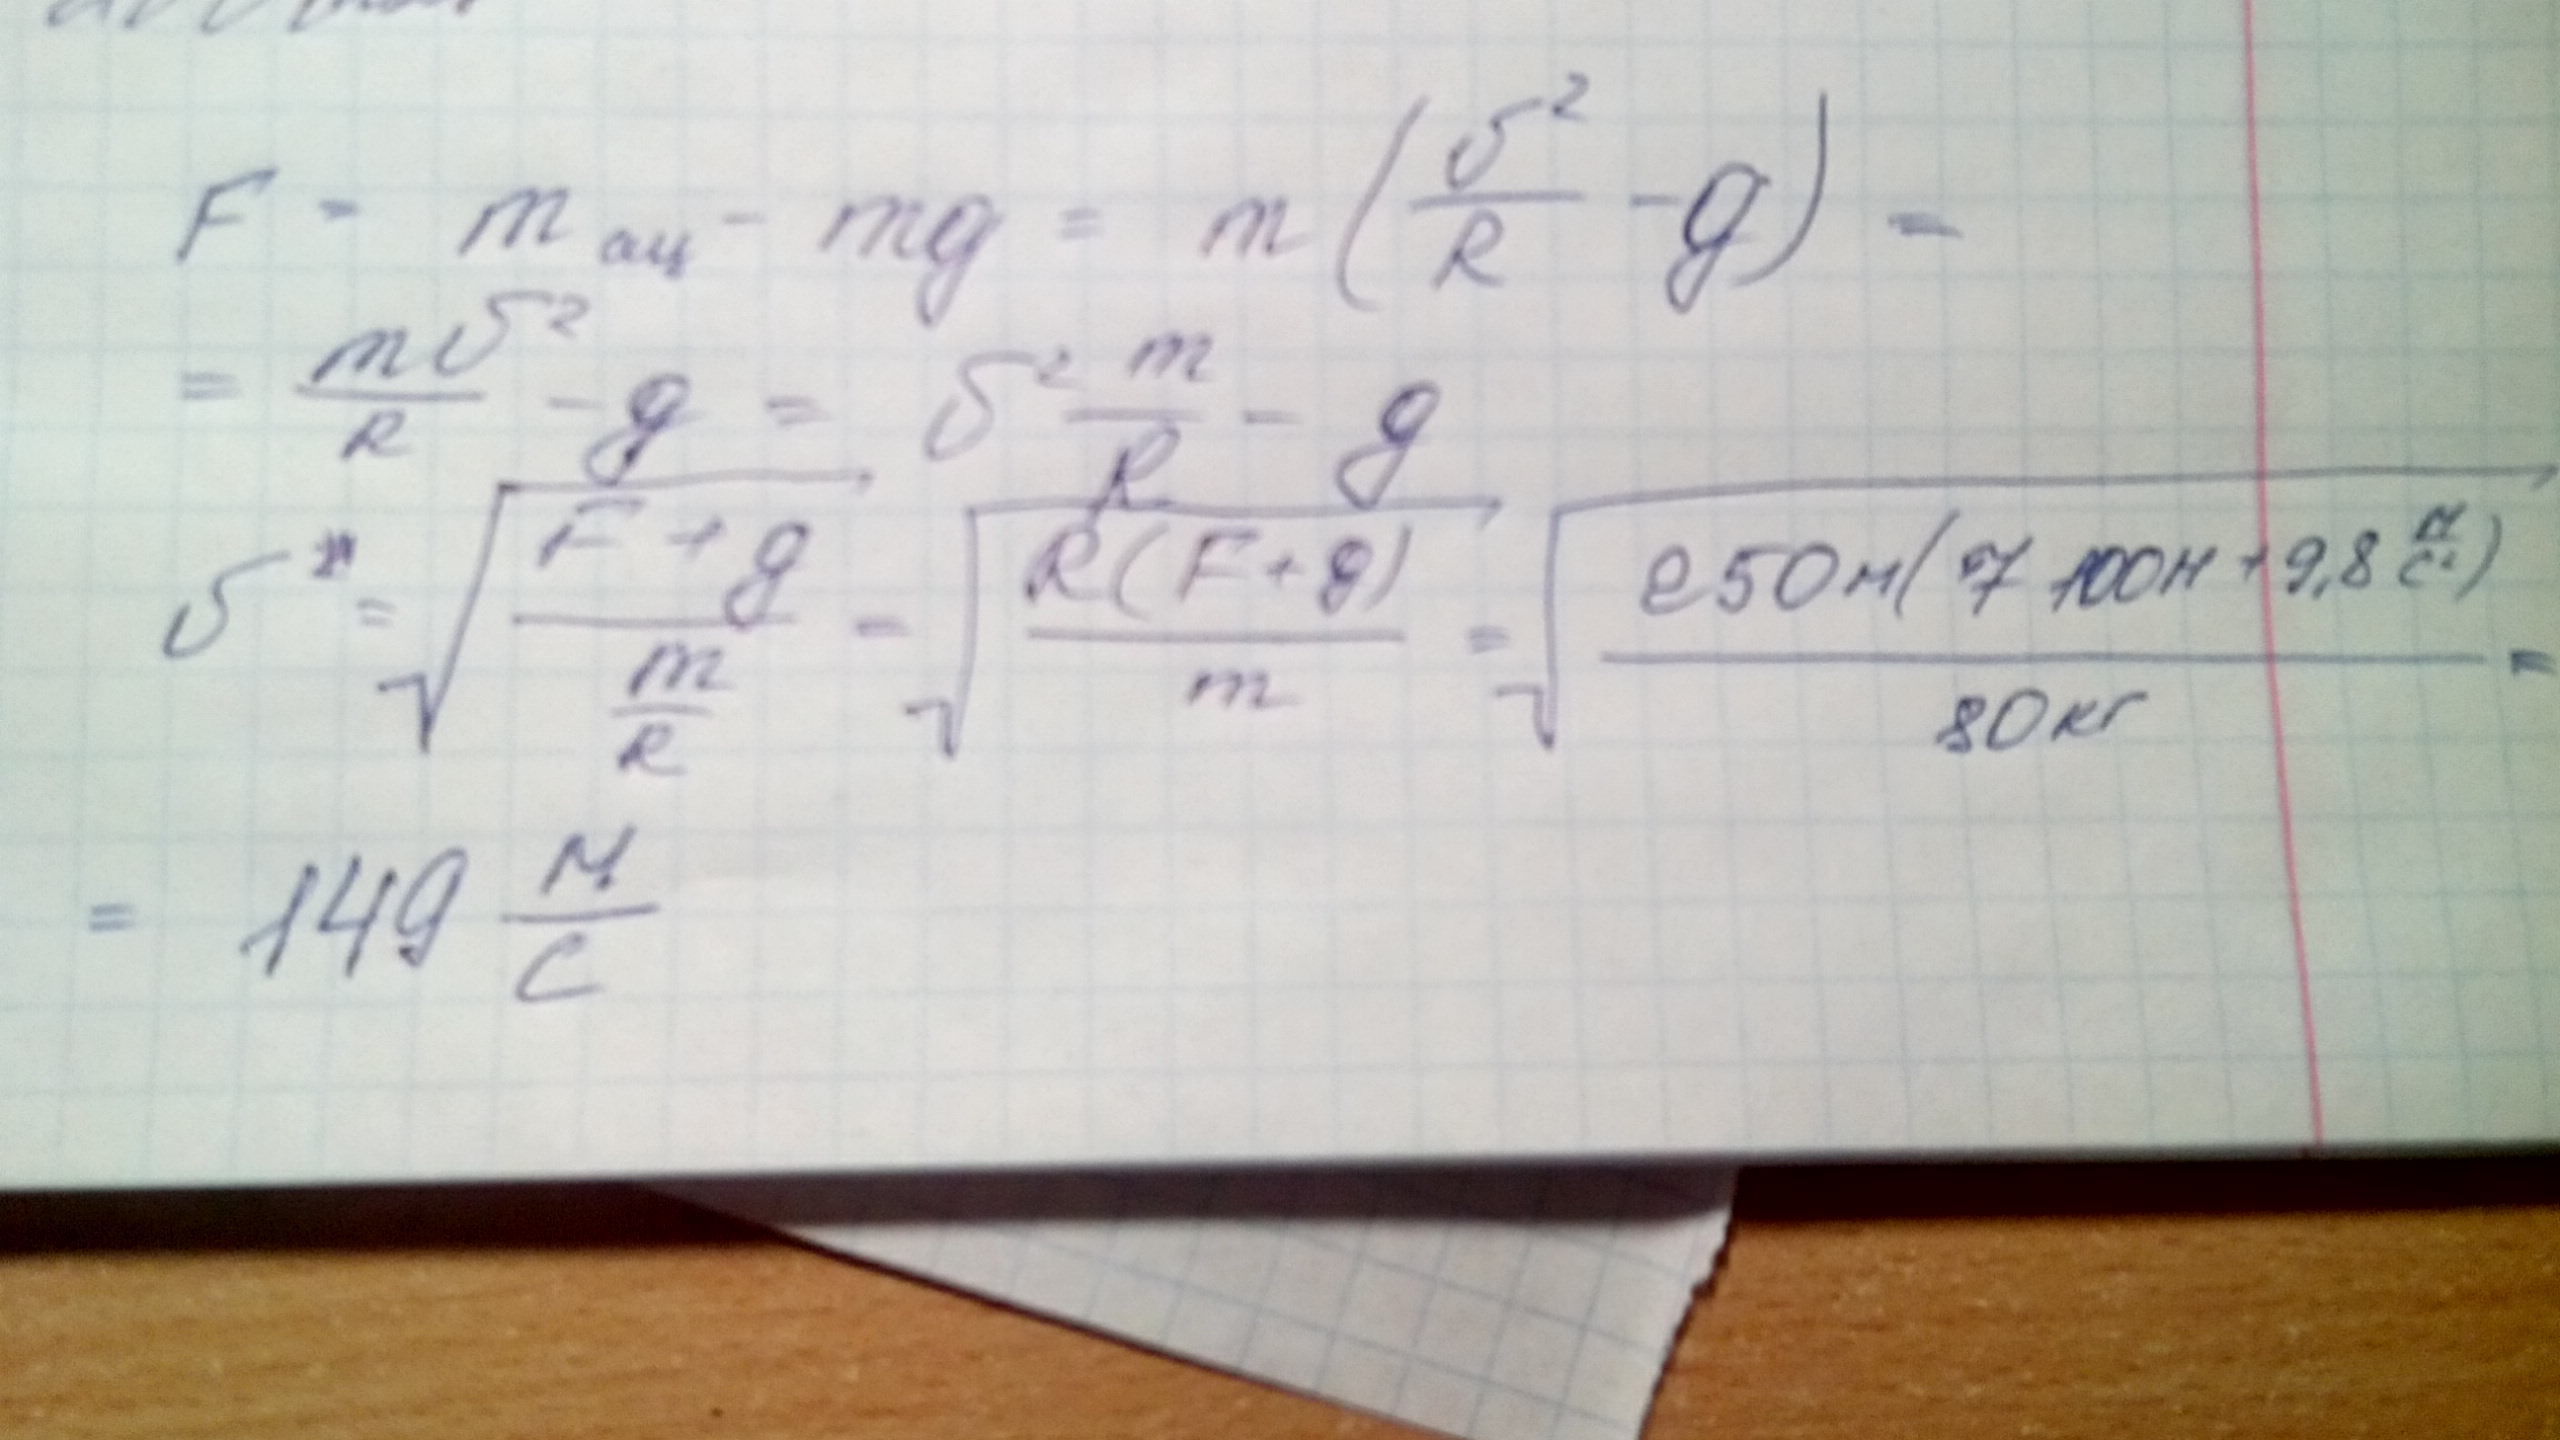 F = m aц - mg = m (υ²/R - g) =
= mυ²/R - g = υ² m/R - g
υ = √((F + g)/(m/R)) = √(R(F + g)/m) = √(250м(7100Н + 9,8 м/с²)/80кг) =
= 149 м/с